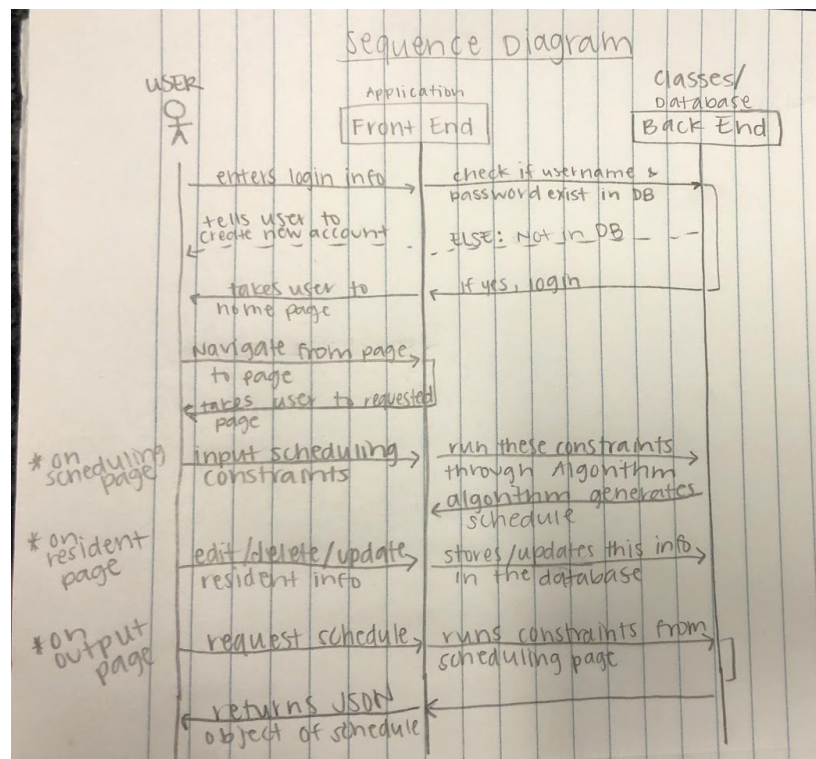 Sequence Diagram
USER
Application
Front End
Classes/
Database
Back End
enters login info
check if username &
password exist in DB
tells user to
create new account
ELSE: Not in DB
takes user to
home page
if yes, login
Navigate from page
to page
takes user to requested
page
*on
scheduling
page
input scheduling
constraints
run these constraints
through Algorithm
algorithm generates
schedule
*on
resident
page
edit/delete/update
resident info
stores/updates this info
in the database
*on
output
page
request schedule
runs constraints from
scheduling page
returns JSON
object of schedule